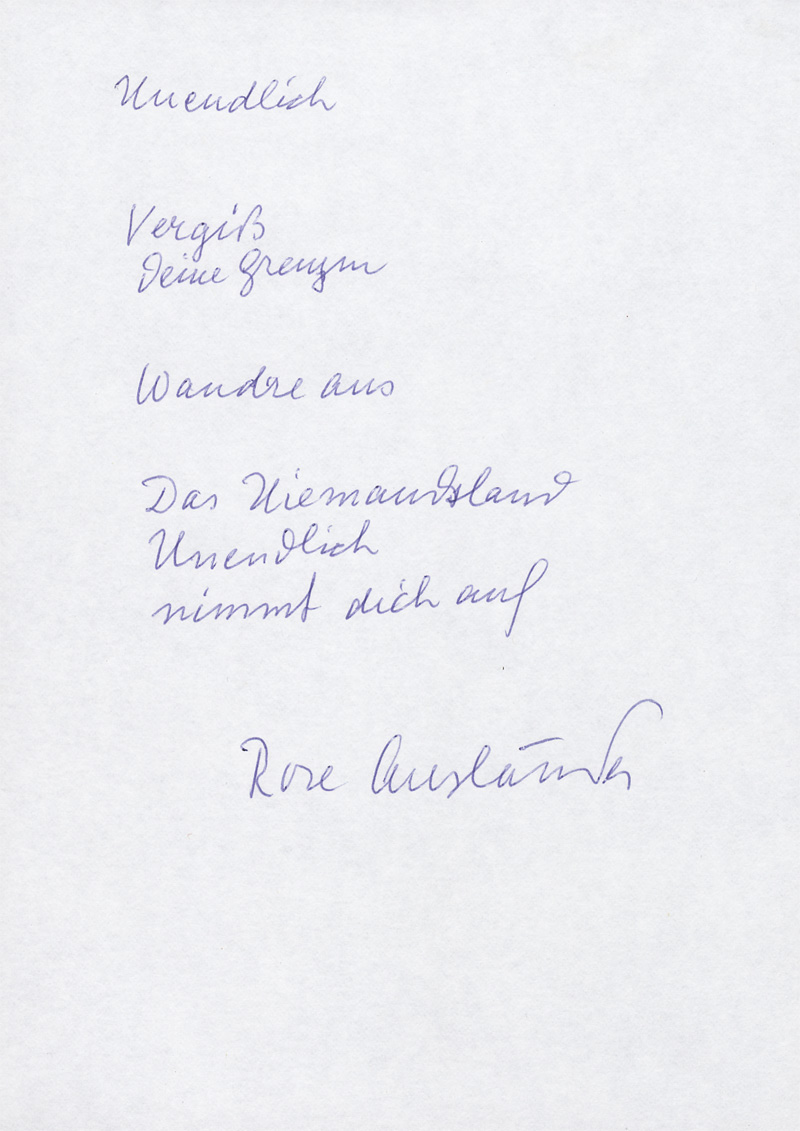 Unendlich
Vergiß
Deine Grenzen
Wandre aus
Das Niemandsland
Unendlich
nimmt dich auf
Rose Ausländer